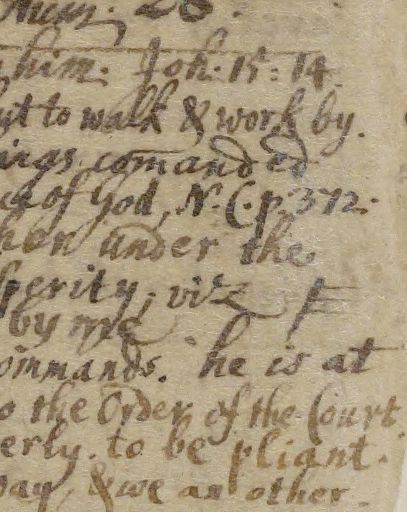 28.
him. Joh: 15: 14
to walk & work by.
ings comanded
of God, N. C. p. 372.
hen under the
sperity; viz
by me
commands. he is at
o the Order of the Court
erly. to be pliant.
way, & we an other.